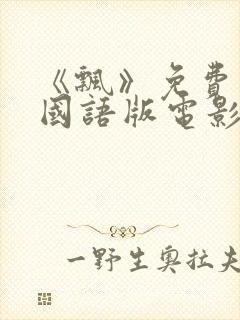 《飄》免費
國語版電影
一野生奧拉夫